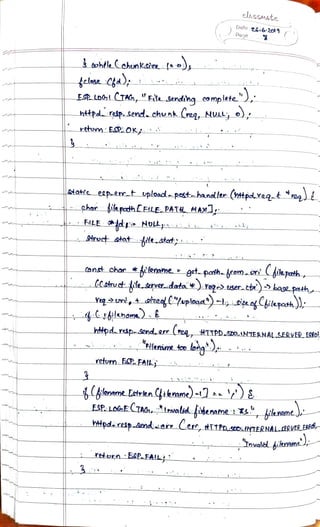 classmate
Date 26-6-2019
Page
} while (chunksize != 0);
fclose (fd);
ESP_LOGI (TAG, "File sending complete");
httpd_resp_send_chunk (req, NULL, 0);
return ESP_OK;
}
static esp_err_t upload_post_handler (httpd_req_t *req) {
char filepath [FILE_PATH_MAX];
FILE *fd = NULL;
struct stat file_stat;
const char *filename = get_path_from_uri (filepath,
((struct file_server_data *) req->user_ctx)->base_path,
req->uri + sizeof ("/upload") -1, sizeof (filepath));
if (!filename) {
httpd_resp_send_err (req, HTTPD_500_INTERNAL_SERVER_ERROR
"Filename too long");
return ESP_FAIL;
}
if (filename [strlen (filename) -1] == '/') {
ESP_LOGE (TAG, "Invalid filename : %s", filename);
httpd_resp_send_err (err, HTTPD_500_INTERNAL_SERVER_ERROR,
"Invalid filename");
return ESP_FAIL;
}